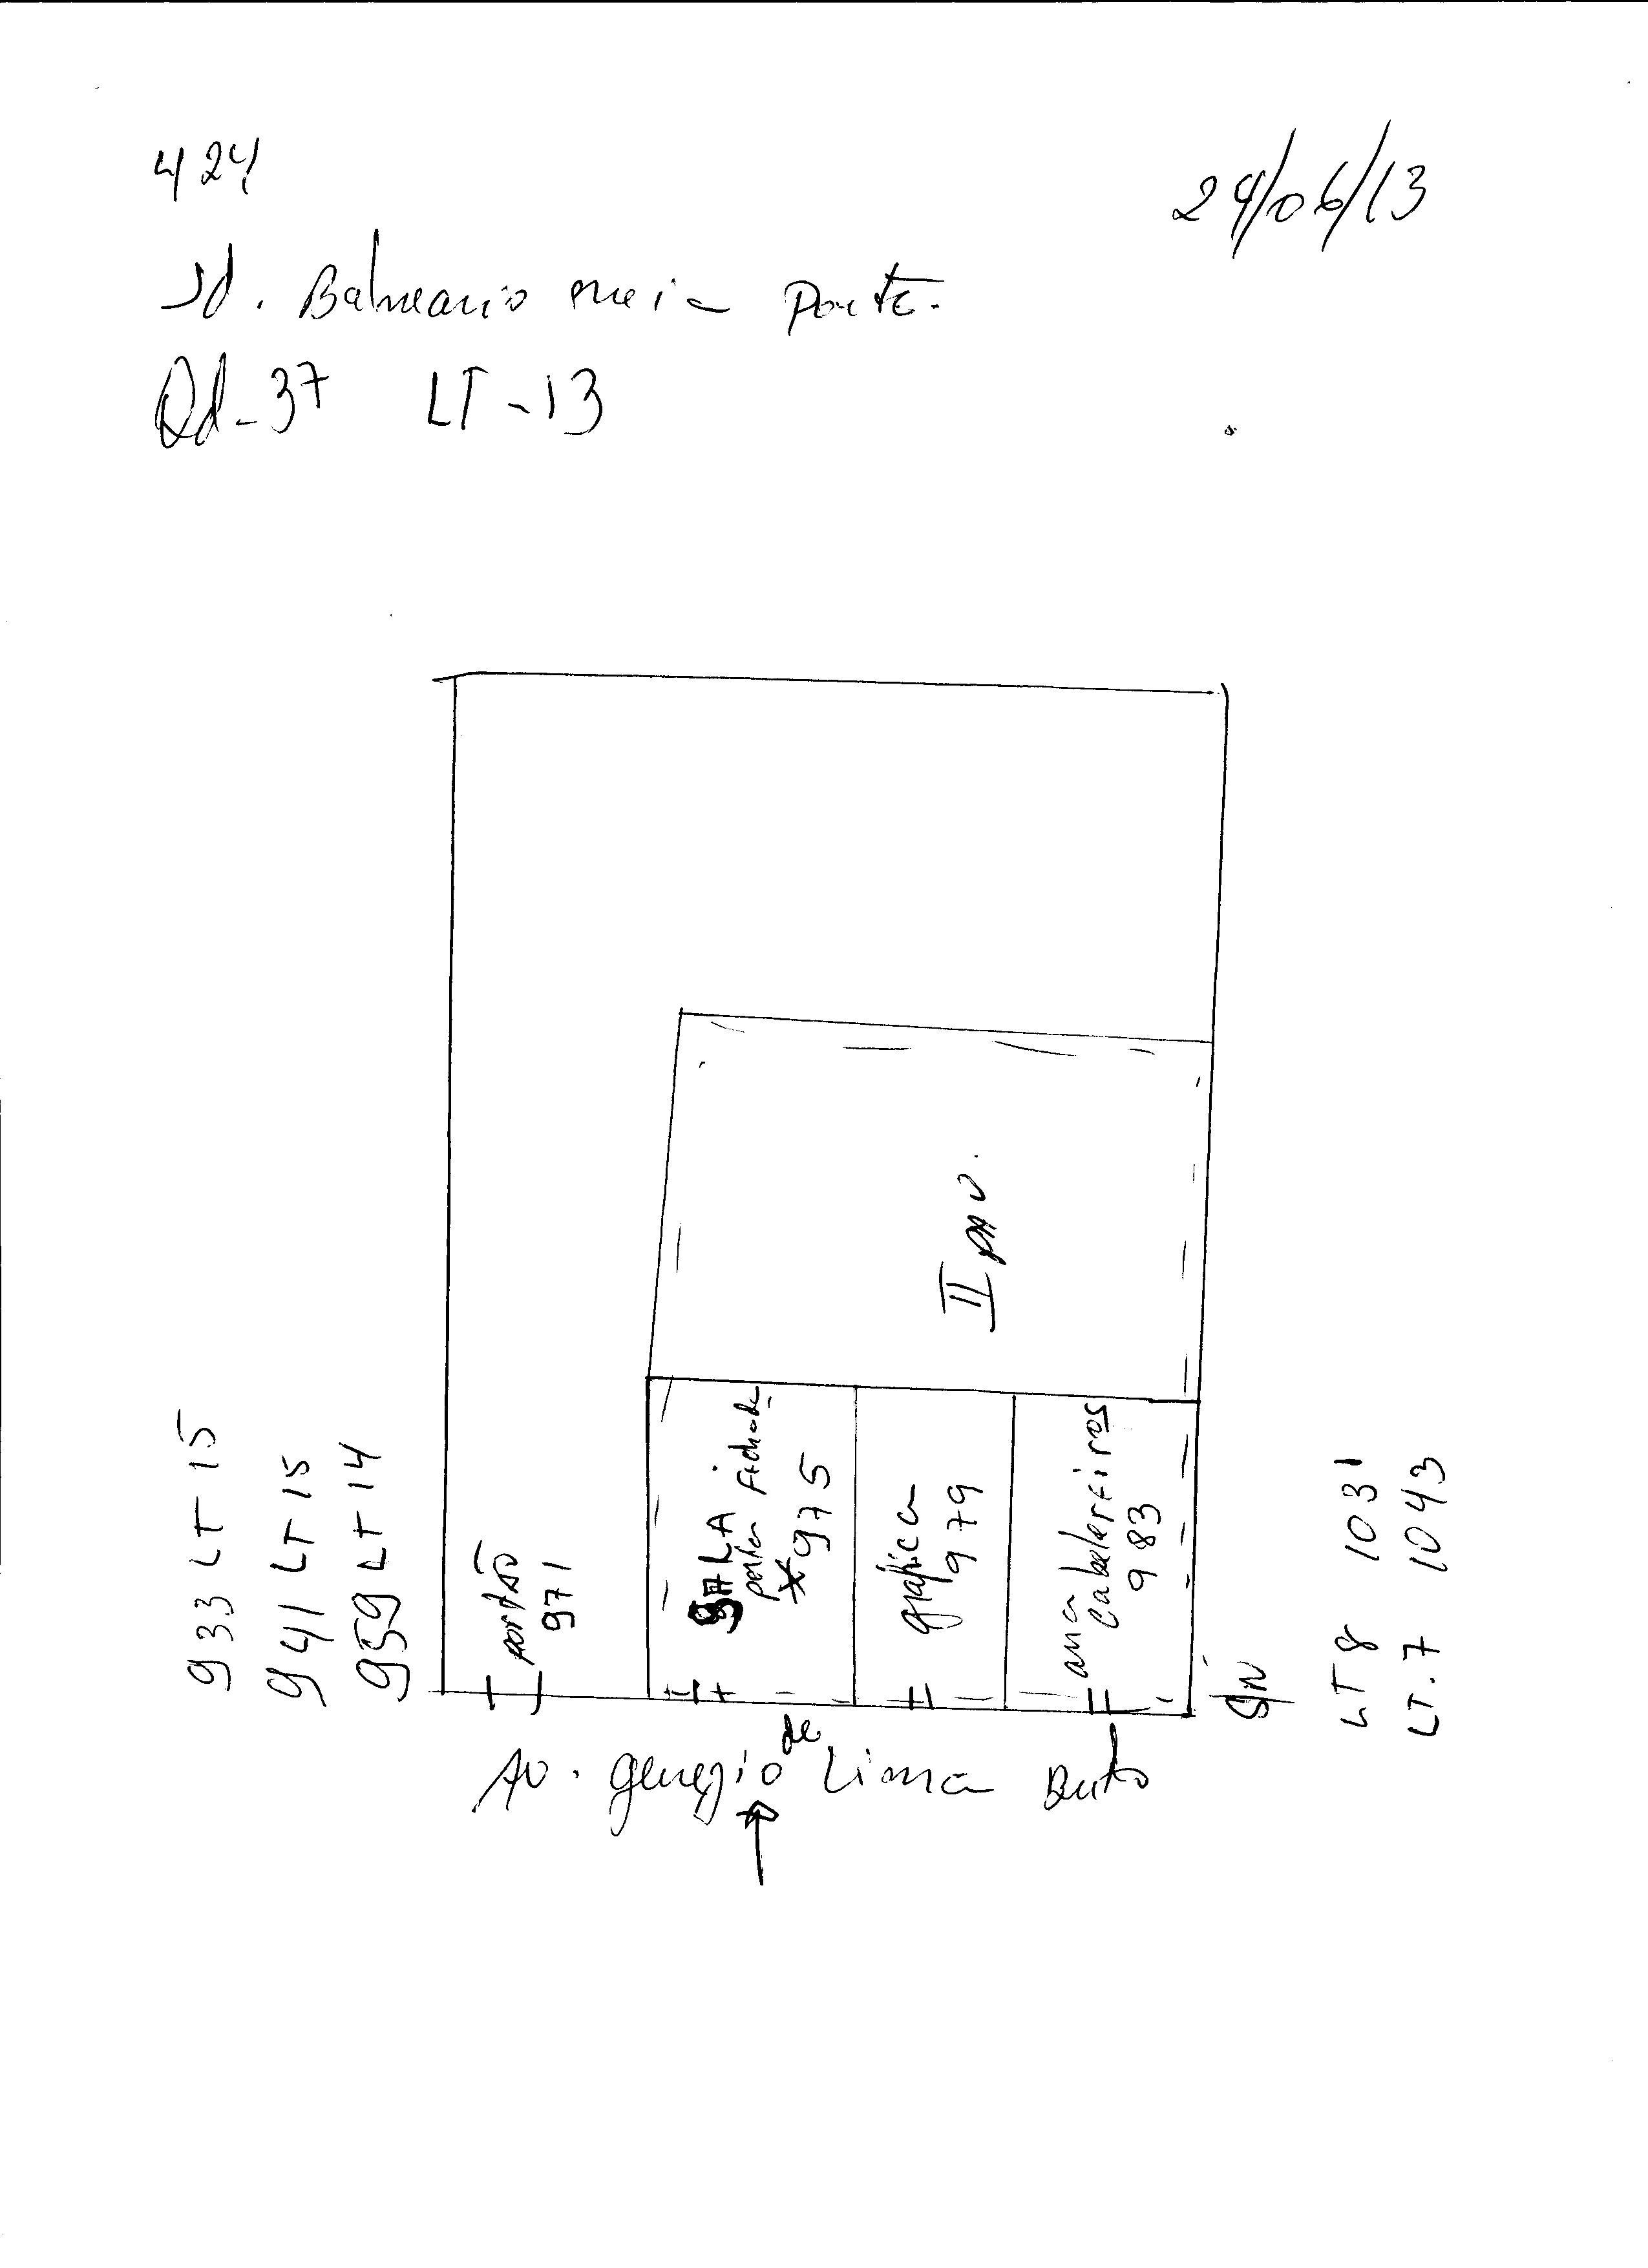 424
24/06/13
Jd. Balneario meia ponte.
Qd-37 LT-13
II pav.
933 LT 15
941 LT 15
959 LT 14
portão
971
SALA
porta fechada
975
grafica
979
ana
Cabelereiros
983
S/N
LT 8 1031
LT.7 1043
Av. genezio de Lima Brito